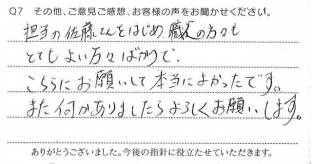 Q7 その他、ご意見ご感想、お客様の声をお聞かせください。
担当の佐藤さんをはじめ 職人の方々も
とてもよい方々ばかりで、
こちらにお願いして本当によかったです。
また何かありましたらよろしくお願いします。
ありがとうございました。今後の指針に役立たせていただきます。